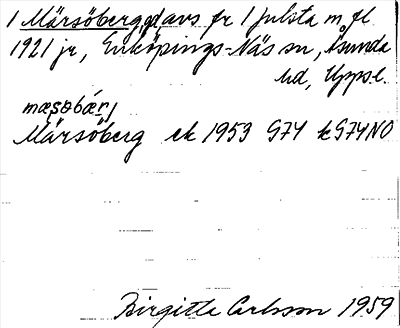 1 Märsöberg gd avs fr 1 Julsta m fl
1921 jr, Enköpings-Näs sn, Åsunda
hd, Upps l.
mæsøbærj
Märsöberg ek 1953 G74 kG74NO
Birgitta Carlsson 1959